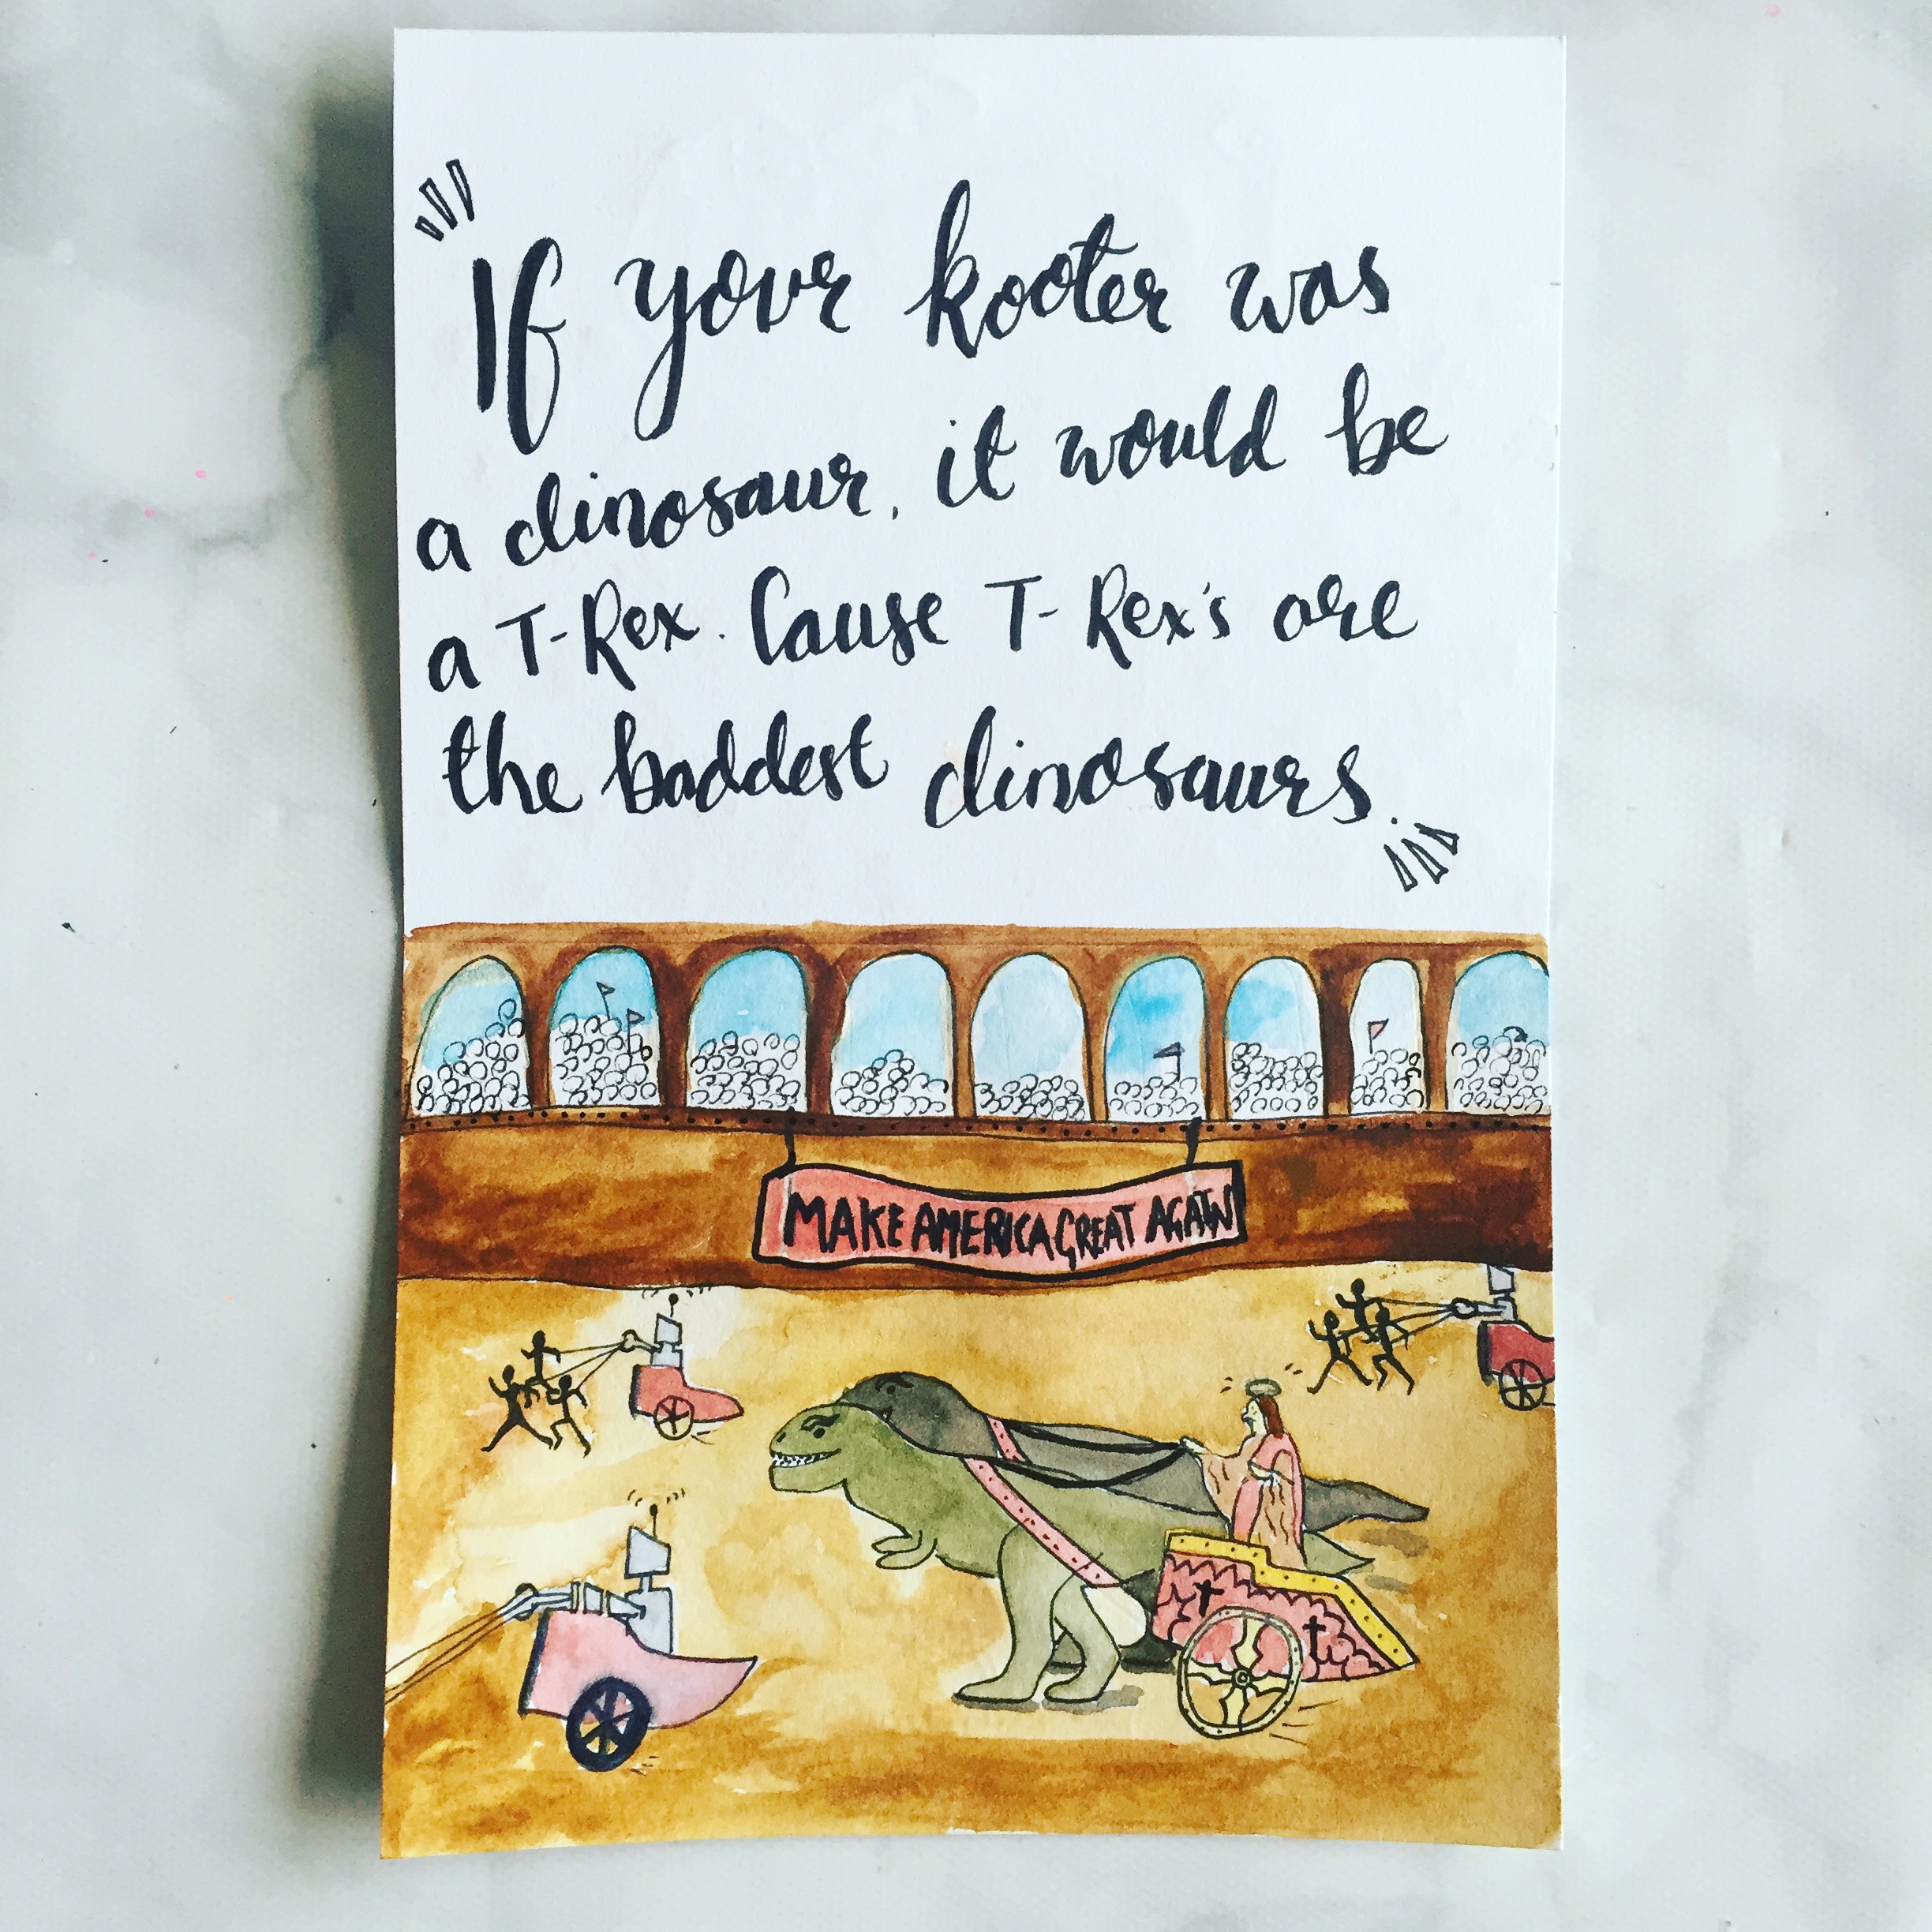 "If your kooter was
a dinosaur, it would be
a T-Rex. Cause T-Rex's are
the baddest dinosaurs."
MAKE AMERICA GREAT AGAIN